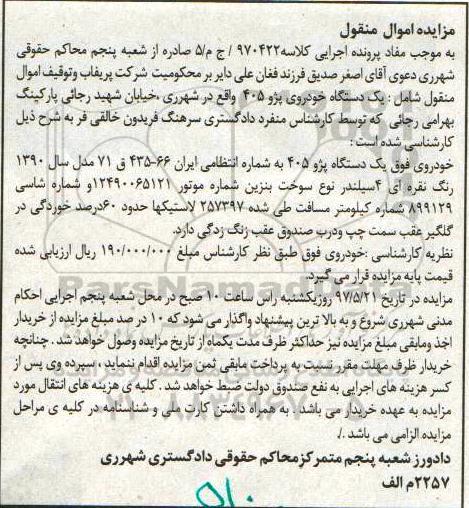 مزایده اموال منقول
به موجب مفاد پرونده اجرایی کلاسه ۹۷۰۴۲۲ / ج م/۵ صادره از شعبه پنجم محاکم حقوقی
شهرری دعوی آقای اصغر صدیق فرزند فغان علی دایر بر محکومیت شرکت پریفاب وتوقیف اموال
منقول شامل : یک دستگاه خودروی پژو ۴۰۵ واقع در شهرری ،خیابان شهید رجائی پارکینگ
بهرامی رجائی که توسط کارشناس منفرد دادگستری سرهنگ فریدون خالقی فر به شرح ذیل
کارشناسی شده است :
خودروی فوق یک دستگاه پژو ۴۰۵ به شماره انتظامی ایران ۶۶-۴۳۵ ق ۷۱ مدل سال ۱۳۹۰
رنگ نقره ای ۴سیلندر نوع سوخت بنزین شماره موتور ۱۲۴۹۰۰۶۵۱۲۱و شماره شاسی
۸۹۹۱۲۹ شماره کیلومتر مسافت طی شده ۲۵۷۳۹۷ لاستیکها حدود ۶۰درصد خوردگی در
گلگیر عقب سمت چپ ودرب صندوق عقب زنگ زدگی دارد.
نظریه کارشناسی :خودروی فوق طبق نظر کارشناس مبلغ ۱۹۰/۰۰۰/۰۰۰ ریال ارزیابی شده
قیمت پایه مزایده قرار می گیرد.
مزایده در تاریخ ۹۷/۵/۲۱ روزیکشنبه راس ساعت ۱۰ صبح در محل شعبه پنجم اجرایی احکام
مدنی شهرری شروع و به بالا ترین پیشنهاد واگذار می شود که ۱۰ در صد مبلغ مزایده از خریدار
اخذ ومابقی مبلغ مزایده نیز حداکثر ظرف مدت یکماه از تاریخ مزایده وصول خواهد شد . چنانچه
خریدار ظرف مهلت مقرر نسبت به پرداخت مابقی ثمن مزایده اقدام ننماید ، سپرده وی پس از
کسر هزینه های اجرایی به نفع صندوق دولت ضبط خواهد شد . کلیه ی هزینه های انتقال مورد
مزایده به عهده خریدار می باشد . به همراه داشتن کارت ملی و شناسنامه در کلیه ی مراحل
مزایده الزامی می باشد ./.
دادورز شعبه پنجم متمرکز محاکم حقوقی دادگستری شهرری
۲۲۵۷م الف